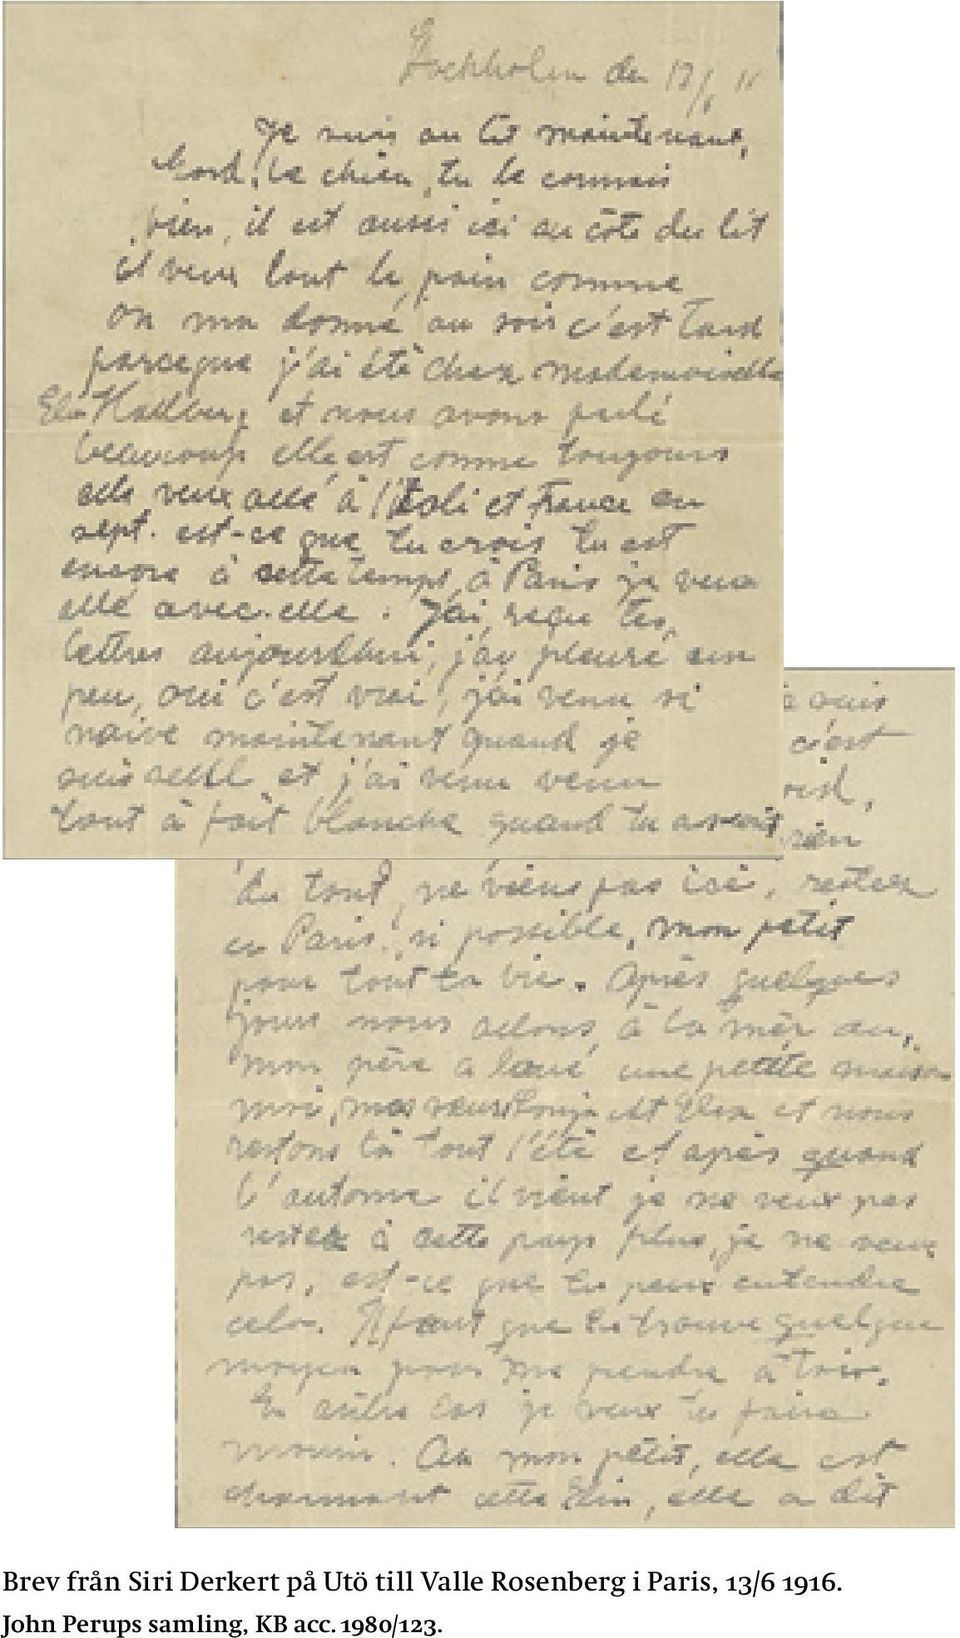 Stockholm den 13/6 16
Je suis au lit maintenant,
le chien, tu le connais
bien, il est aussi ici au côte du lit
il veux tout le pain comme
on ma donné au soir c'est tard
parceque j'ai été chez mademoiselle
Hallberg et nous avons parlé
beaucoup elle est comme toujours
elle veux allé à l'Itali et France en
sept. est-ce que tu crois tu est
encore à cette temps à Paris je veux
allé avec elle. J'ai reçu tes
lettres aujourdhui, j'ay pleuré un
peu, oui c'est vrai, j'ai venu si
naive maintenant quand je
suis seul et j'ai venu venu
tout à fait blanche quand tu
suis
c'est
rien
du tout, ne viens pas ici, rester
en Paris, si possible, mon petit
pour tout ta vie. Après quelques
jours nous allons à la mèr
mon père a loué une petite maison
moi, et Elin et nous
restons là tout l'été et après quand
l'automne il vient je ne veux pas
rester à cette pays plus, je ne veux
pas, est-ce que tu peux entendre
cela. Il faut que tu trouve quelque
moyen pour me prendre à toi.
En autre cas je veux te faire
mourir. Ah mon petit, elle est
charmant cette Elin, elle a dit
Brev från Siri Derkert på Utö till Valle Rosenberg i Paris, 13/6 1916.
John Perups samling, KB acc. 1980/123.